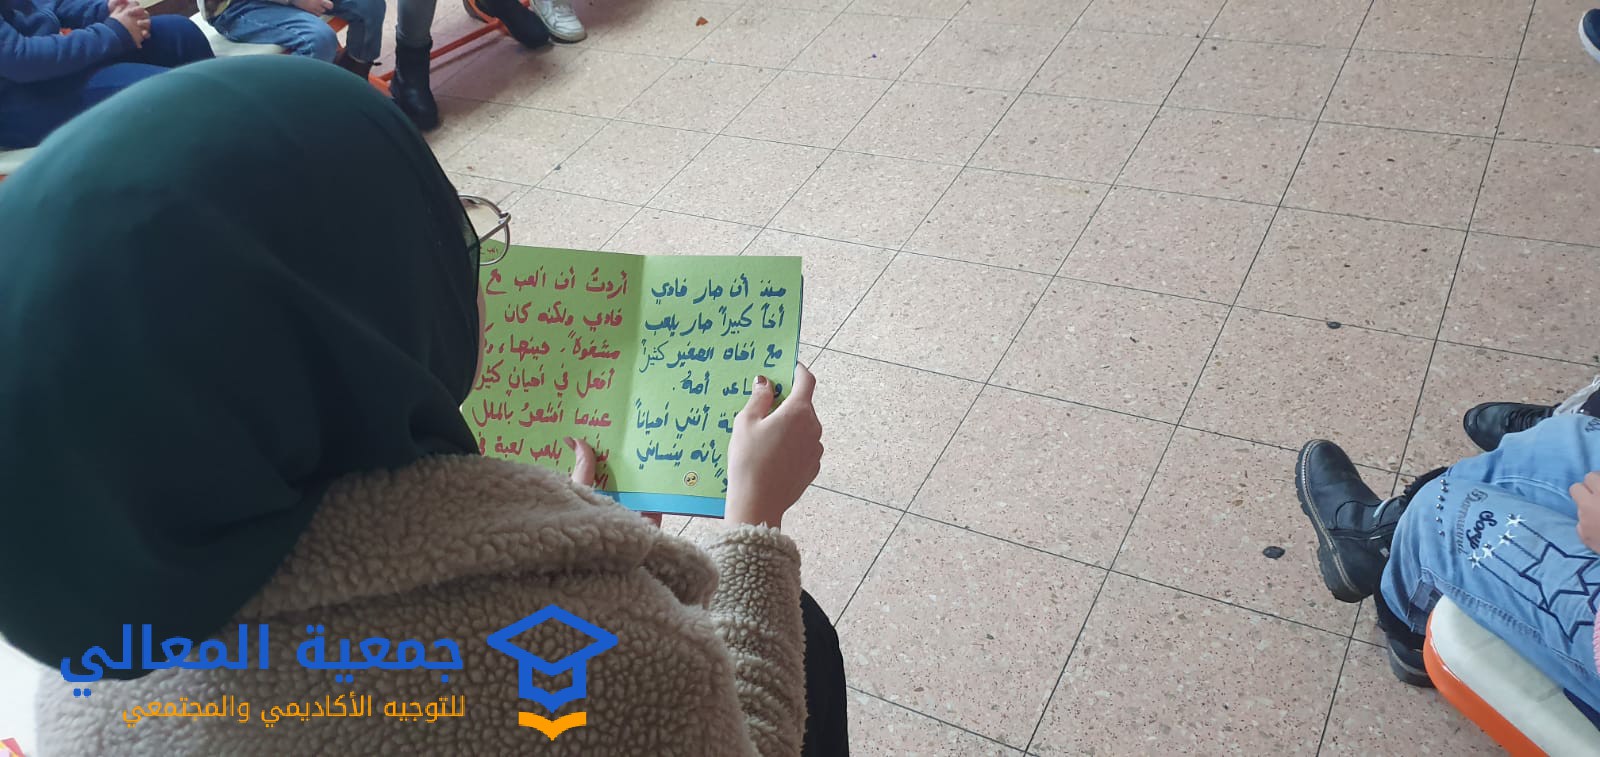 منذ أن صار فادي
أخاً كبيراً صار يلعب
مع أخاه الصغير كثيراً
أمهُ.
أنني أحياناً
بأنه ينساني
أردتُ أن ألعب مع
فادي ولكنه كان
مشغولاً. حينها،
أفعل في أحيانٍ
عندما أشعرُ بالملل
يلعب لعبة
جمعية المعالي
للتوجيه الأكاديمي والمجتمعي